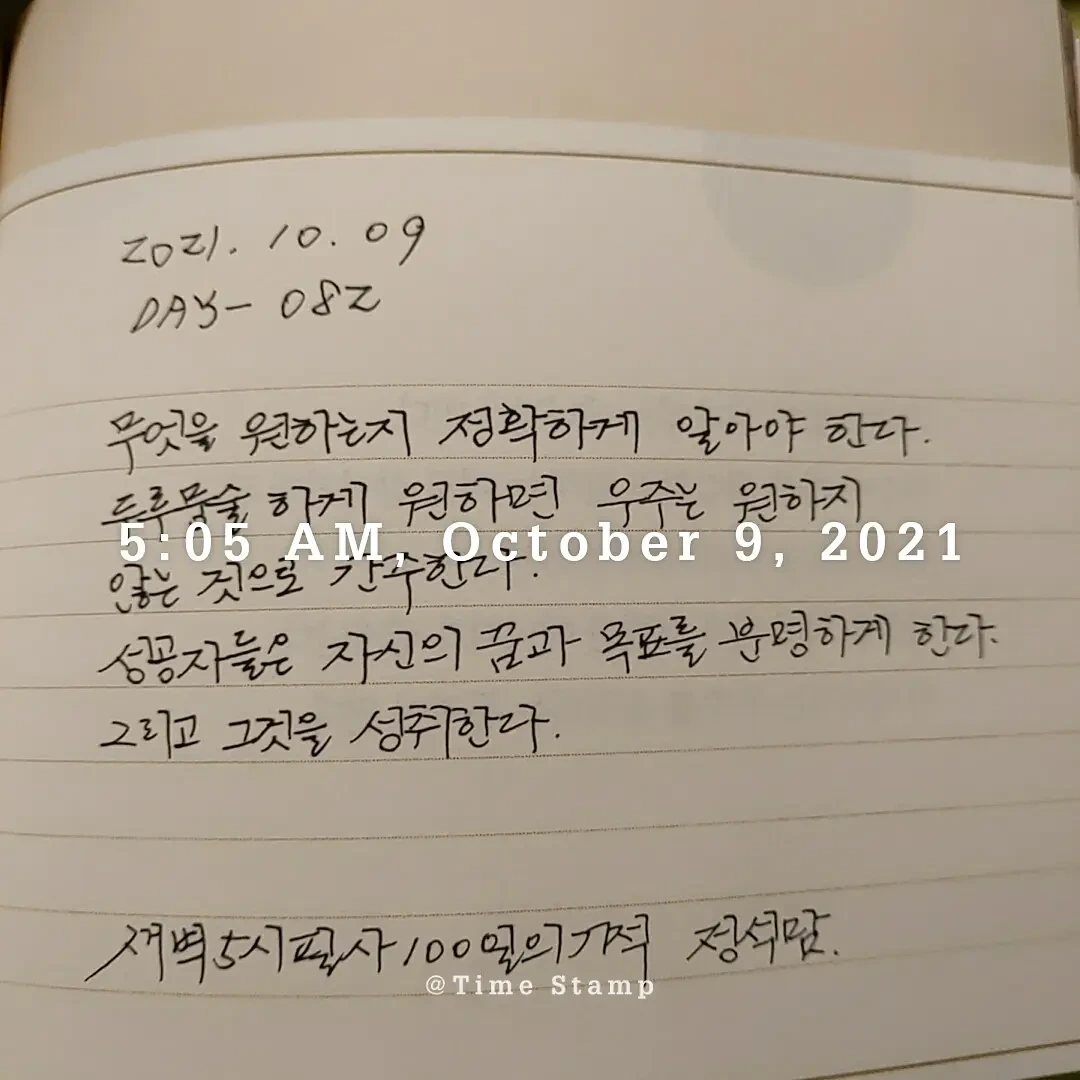 2021. 10. 09
DAY- 082
무엇을 원하는지 정확하게 알아야 한다.
두루뭉술 하게 원하면 우주는 원하지
5:05 AM, October 9, 2021
않는 것으로 간주한다.
성공자들은 자신의 꿈과 목표를 분명하게 한다.
그리고 그것을 성취한다.
새벽5시필사100일의기적 정석맘.
@Time Stamp